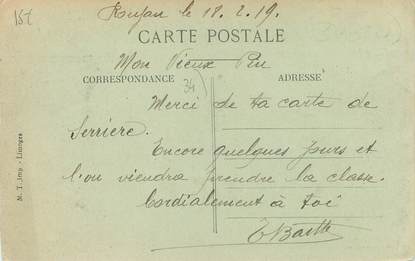 15t
Roujan le 18.2.19.
CARTE POSTALE
Mon Vieux
CORRESPONDANCE
ADRESSE
34
Merci de ta carte de
Serrière.
Encore quelques jours et
l'on viendra prendre la classe.
Cordialement à toi
M. T. Imp. - Limoges